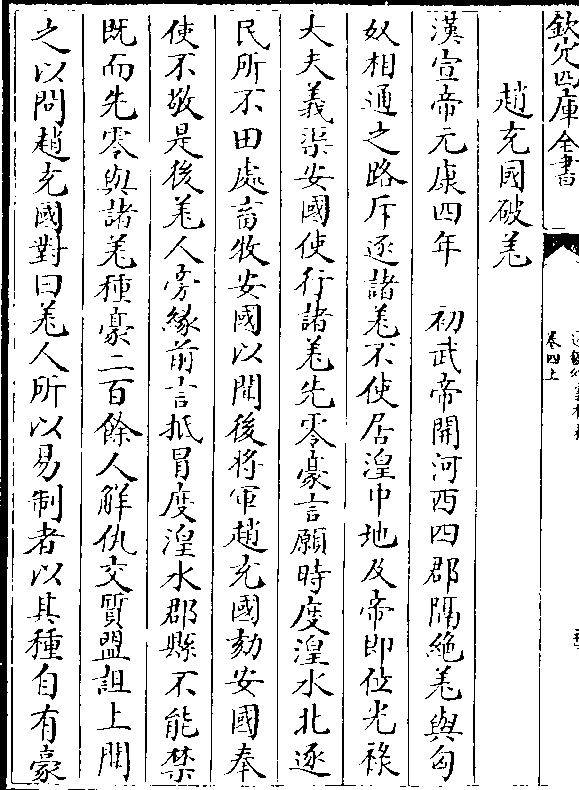 欽定四庫全書
卷四上
趙充國破羌
漢宣帝元康四年　初武帝開河西四郡隔絶羌與匈
奴相通之路斥逐諸羌不使居湟中地及帝即位光祿
大夫義渠安國使行諸羌先零豪言願時度湟水北逐
民所不田處畜牧安國以聞後將軍趙充國劾安國奉
使不敬是後羌人旁緣前言抵冒度湟水郡縣不能禁
既而先零與諸羌種豪二百餘人解仇交質盟詛上聞
之以問趙充國對曰羌人所以易制者以其種自有豪